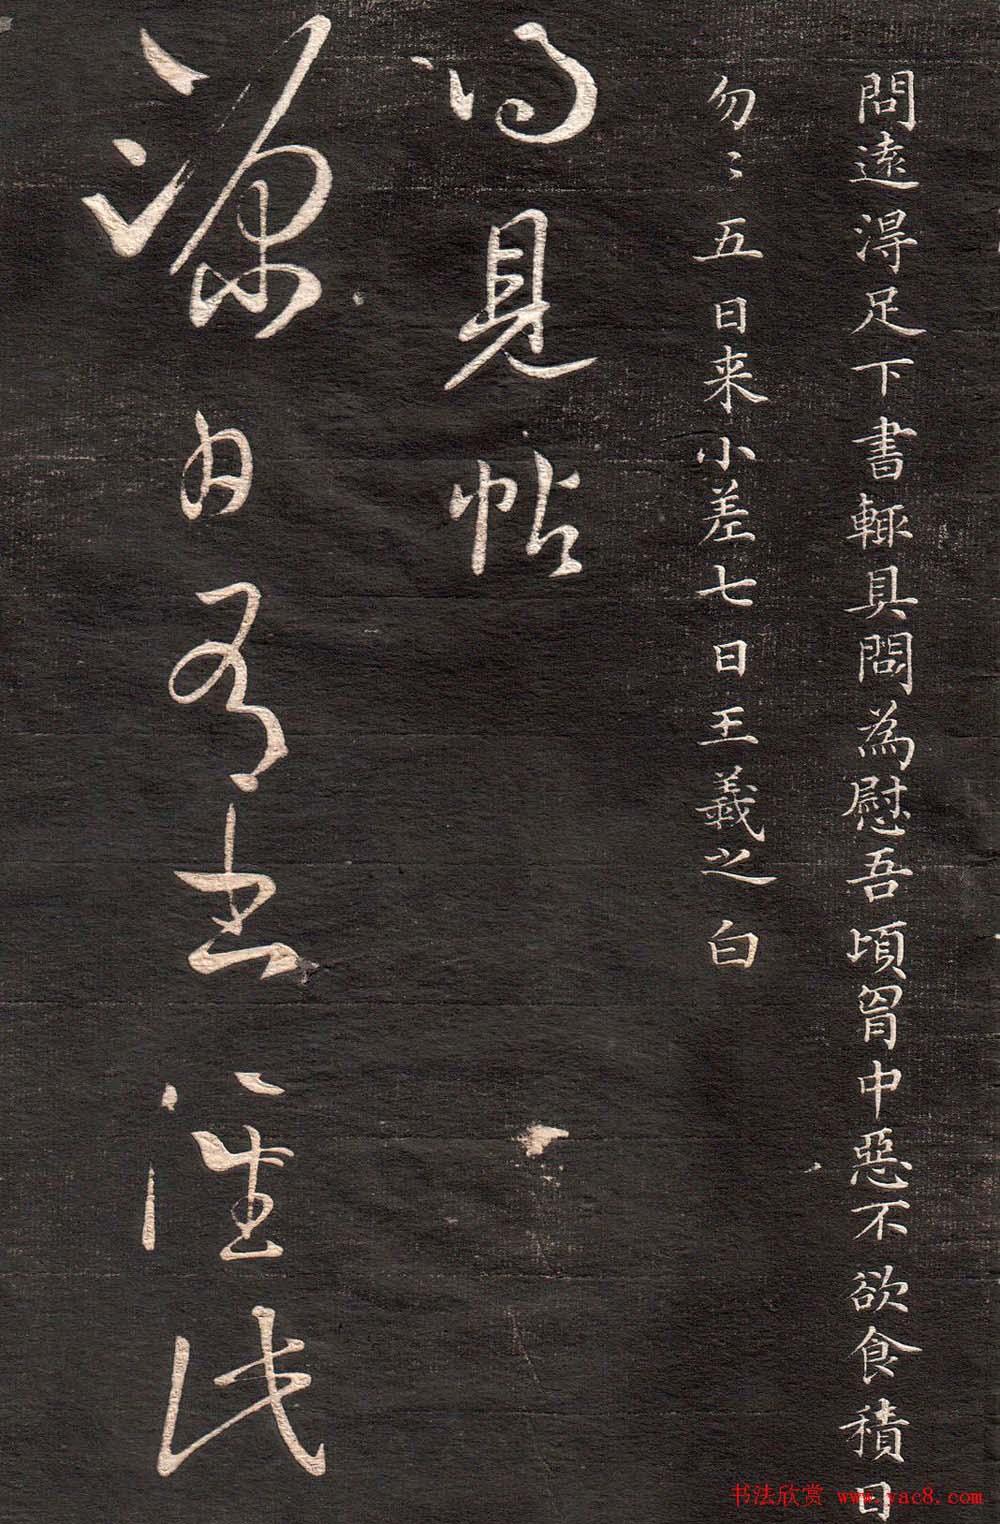 問遠淂足下書輙具問為慰吾頃胷中惡不欲食積日
勿〻五日来小差七日王羲之白
見帖
源 有書
书法欣赏 www.yac8.com